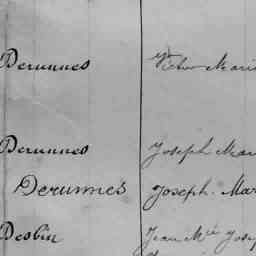 Derunnes Victor Marie
Derunnes Joseph Mar
Derunnes Joseph. Mar
Desbin Jean Mie Josep